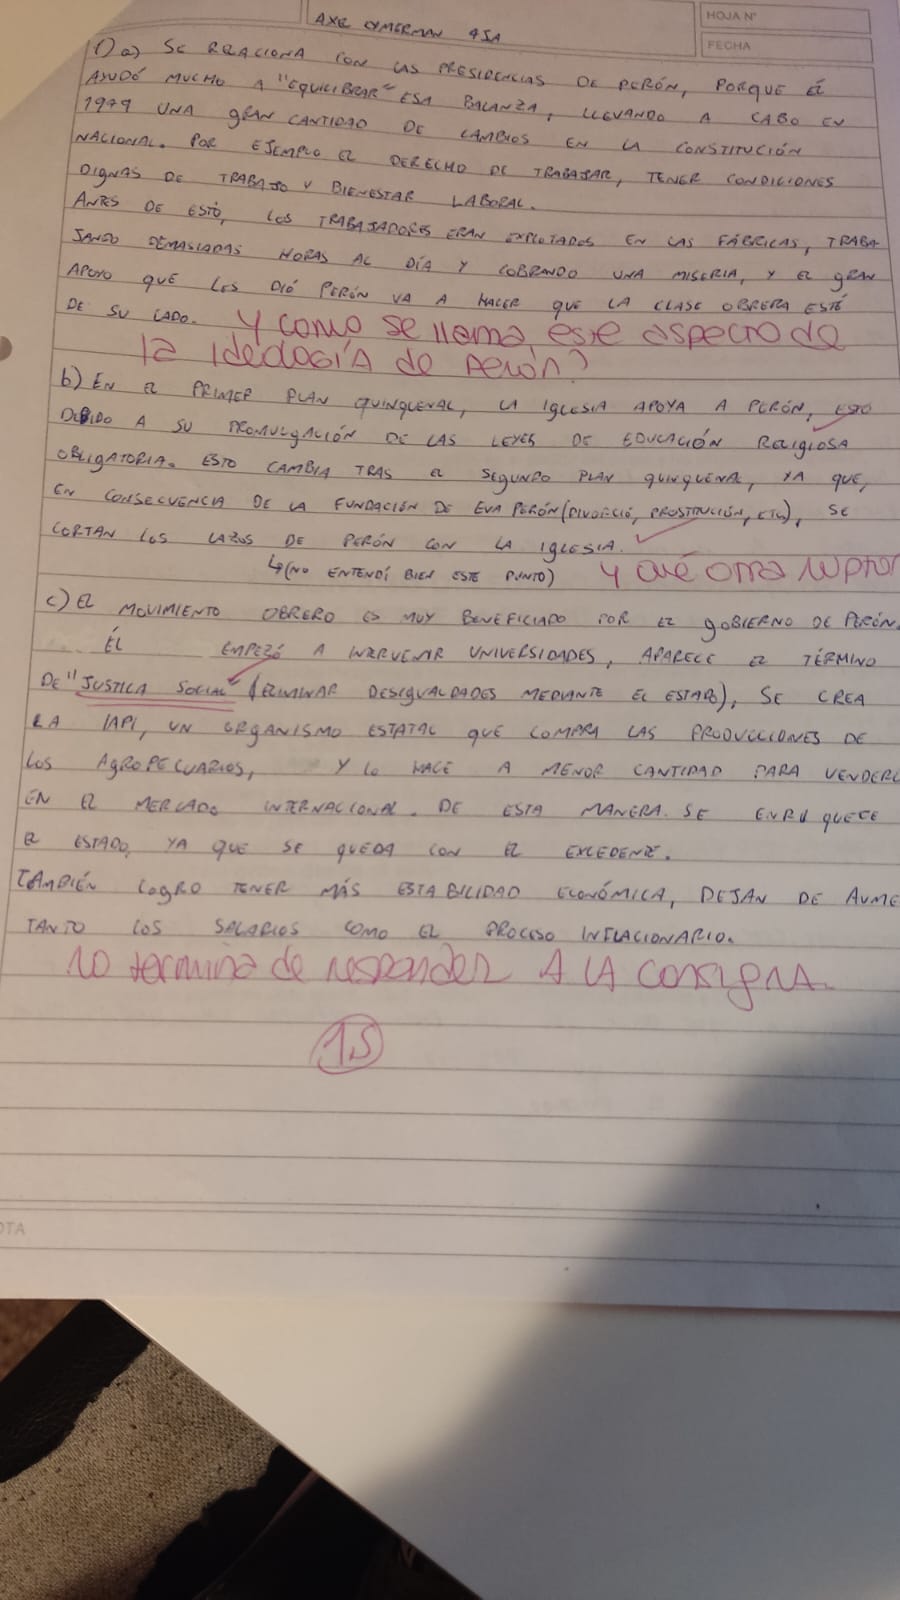 AXEL CYMERMAN 4SA
HOJA N°
FECHA
1) a) SE RELACIONA CON LAS PRESIDENCIAS DE PERÓN, PORQUE ÉL
AYUDÓ MUCHO A "EQUILIBRAR" ESA BALANZA, LLEVANDO A CABO EN
1949 UNA GRAN CANTIDAD DE CAMBIOS EN LA CONSTITUCIÓN
NACIONAL. POR EJEMPLO EL DERECHO DE TRABAJAR, TENER CONDICIONES
DIGNAS DE TRABAJO Y BIENESTAR LABORAL.
ANTES DE ESTO, LOS TRABAJADORES ERAN EXPLOTADOS EN LAS FÁBRICAS, TRABA-
JANDO DEMASIADAS HORAS AL DÍA Y COBRANDO UNA MISERIA, Y EL GRAN
APOYO QUE LES DIÓ PERÓN VA A HACER QUE LA CLASE OBRERA ESTÉ
DE SU LADO. Y como se llama este aspecto de
la ideología de Perón?
b) EN EL PRIMER PLAN QUINQUENAL, LA IGLESIA APOYA A PERÓN, ESTO
DEBIDO A SU PROMULGACIÓN DE LAS LEYES DE EDUCACIÓN RELIGIOSA
OBLIGATORIA. ESTO CAMBIA TRAS EL SEGUNDO PLAN QUINQUENAL, YA QUE,
EN CONSECUENCIA DE LA FUNDACIÓN DE EVA PERÓN (DIVORCIO, PROSTITUCIÓN, ETC), SE
CORTAN LOS LAZOS DE PERÓN CON LA IGLESIA.
↳(NO ENTENDÍ BIEN ESTE PUNTO) Y qué otra ruptur
c) EL MOVIMIENTO OBRERO ES MUY BENEFICIADO POR EL GOBIERNO DE PERÓN.
ÉL EMPEZÓ A INTERVENIR UNIVERSIDADES, APARECE EL TÉRMINO
DE "JUSTICA SOCIAL" (ELIMINAR DESIGUALDADES MEDIANTE EL ESTADO), SE CREA
LA IAPI, UN ORGANISMO ESTATAL QUE COMPRA LAS PRODUCCIONES DE
LOS AGROPECUARIOS, Y LO HACE A MENOR CANTIDAD PARA VENDERL
EN EL MERCADO INTERNACIONAL. DE ESTA MANERA SE ENRIQUECE
EL ESTADO, YA QUE SE QUEDA CON EL EXCEDENTE.
TAMBIÉN LOGRO TENER MÁS ESTABILIDAD ECONÓMICA, DEJAN DE AUME
TANTO LOS SALARIOS COMO EL PROCESO INFLACIONARIO.
No termina de responder A LA consigna.
1,5
OTA